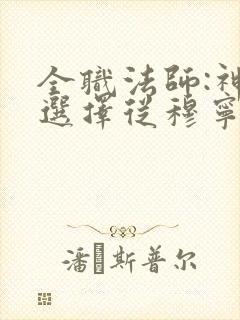 全職法師:神
選擇從穆寧
潘斯普尔